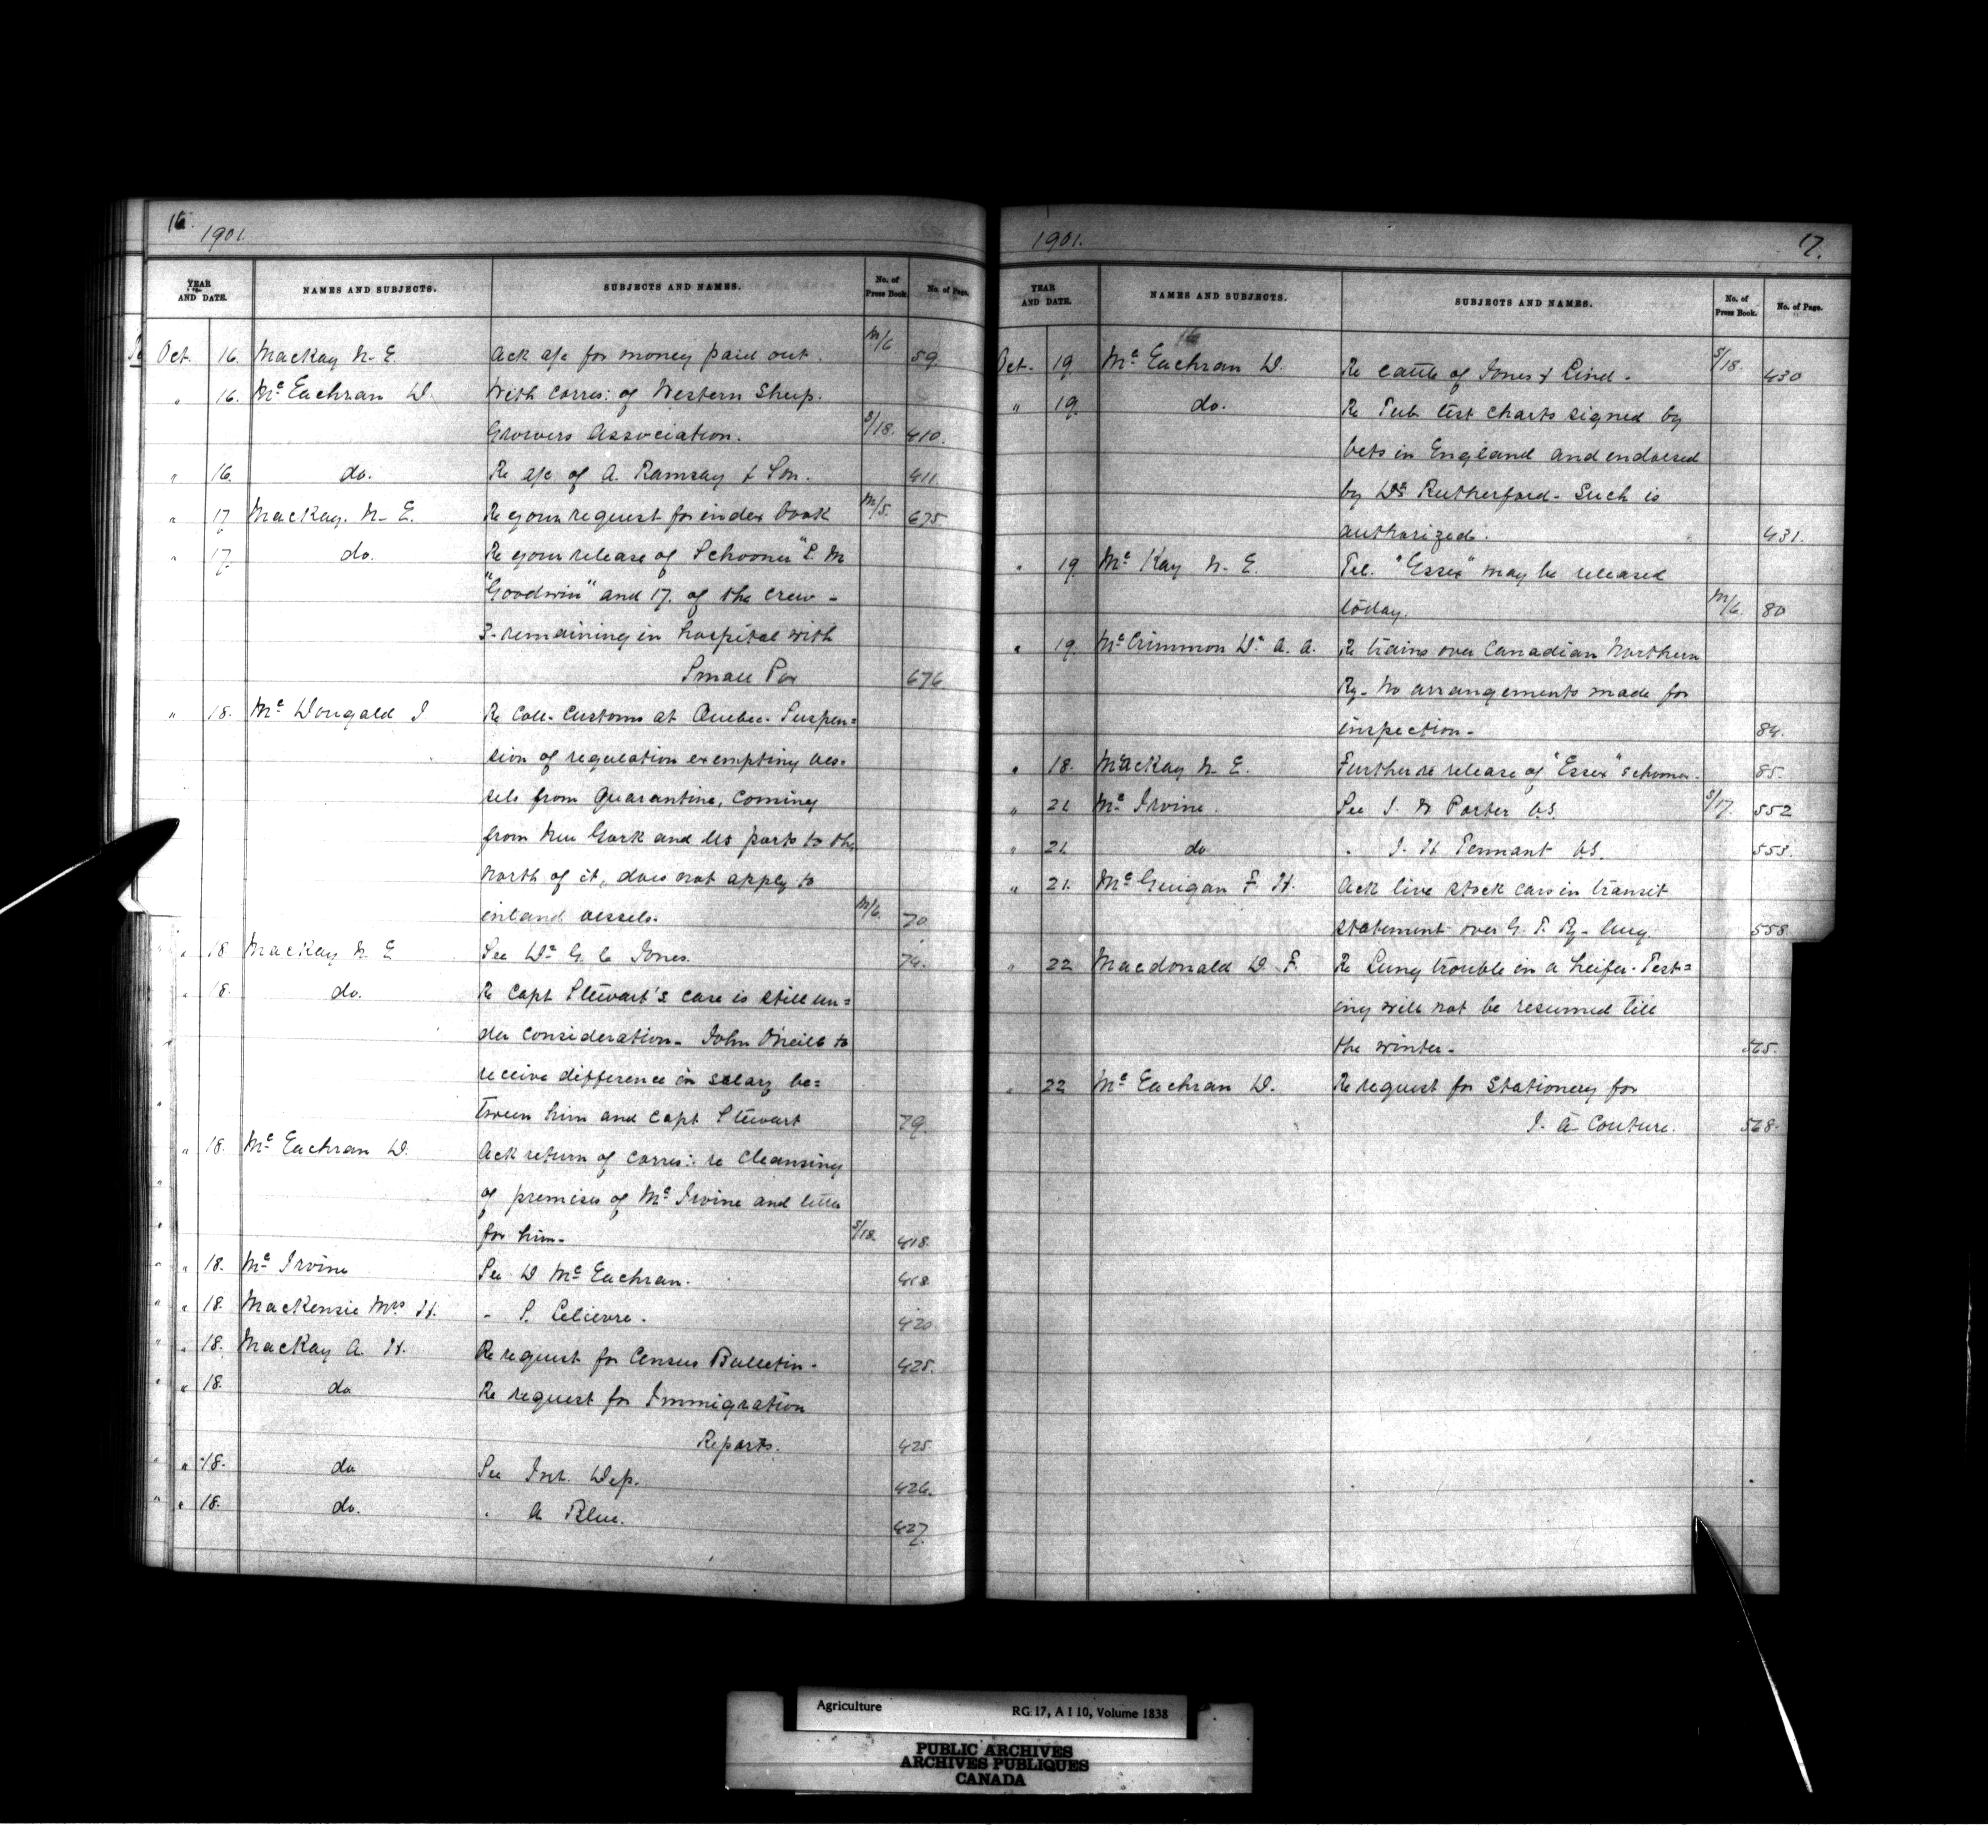 16.
1901.
YEAR AND DATE. NAMES AND SUBJECTS. SUBJECTS AND NAMES. No. of Press Book. No. of Page.
Oct. 16. MacKay N. E. Ack a/c for money paid out. M/6 59.
" 16. Mc Eachran D. With corres: of Western Sheep
Growers Association. S/18. 410.
" 16. do. Re a/c of A. Ramsay & Son. 411.
" 17 MacKay. N. E. Re your request for index book M/5. 675
" 17. do. Re your release of Schooner "L. M
"Goodwin" and 17. of the crew -
3 - remaining in hospital with
Small Pox 676.
" 18. Mc Dougald J Re Coll. Customs at Quebec. Suspen=
sion of regulation exempting ves-
sels from Quarantine, coming
from New York and US ports to the
North of it, does not apply to
inland vessels. M/6. 70.
" 18 MacKay N. E See Dr G. C Jones. 74.
" 18. do. Re Capt Stewart's case is still un=
der consideration - John O'Neill to
receive difference in salary be=
tween him and Capt Stewart 79.
" 18. Mc Eachran D. Ack return of corres: re cleansing
of premises of Mc Irvine and letter
for him - S/18. 418.
" 18. Mc Irvine See D Mc Eachran. 418.
" 18. MacKensie Mrs H. " S. Lelievre. 420.
" 18. MacKay A. H. Re request for Census Bulletin - 425.
" 18. do Re request for Immigration
Reports. 425.
" 18. do See Int. Dep. 426.
" 18. do. " A Blue. 427.
1901. 17.
YEAR AND DATE. NAMES AND SUBJECTS. SUBJECTS AND NAMES. No. of Press Book. No. of Page.
16
Oct. 19 Mc Eachran D. Re cattle of Jones & Lind - S/18. 430
" 19. do. Re Tub. test charts signed by
Vets in England and endorsed
by Dr Rutherford - Such is
authorized. 431.
" 19. Mc Kay N. E. Tel. "Essex" may be released
today. M/6. 80
" 19. Mc Crimmon Dr A. A. Re trains over Canadian Northern
Ry - No arrangements made for
inspection - 84.
" 18. MacKay N. E. Further re release of "Essex" schooner - 85.
" 21 Mc Irvine. See J. W Porter V.S. S/17. 552
" 21 do " J. H Tennant V.S. 553.
" 21. Mc Guigan F. H. Ack live stock cars in transit
statement over G. T. Ry - Aug. 558.
" 22 Macdonald D. F. Re Lung trouble in a heifer. Test=
ing will not be resumed till
the winter - 565.
" 22 Mc Eachran D. Re request for stationery for
J. A. Couture. 568.
Agriculture RG 17, A I 10, Volume 1838
PUBLIC ARCHIVES
ARCHIVES PUBLIQUES
CANADA